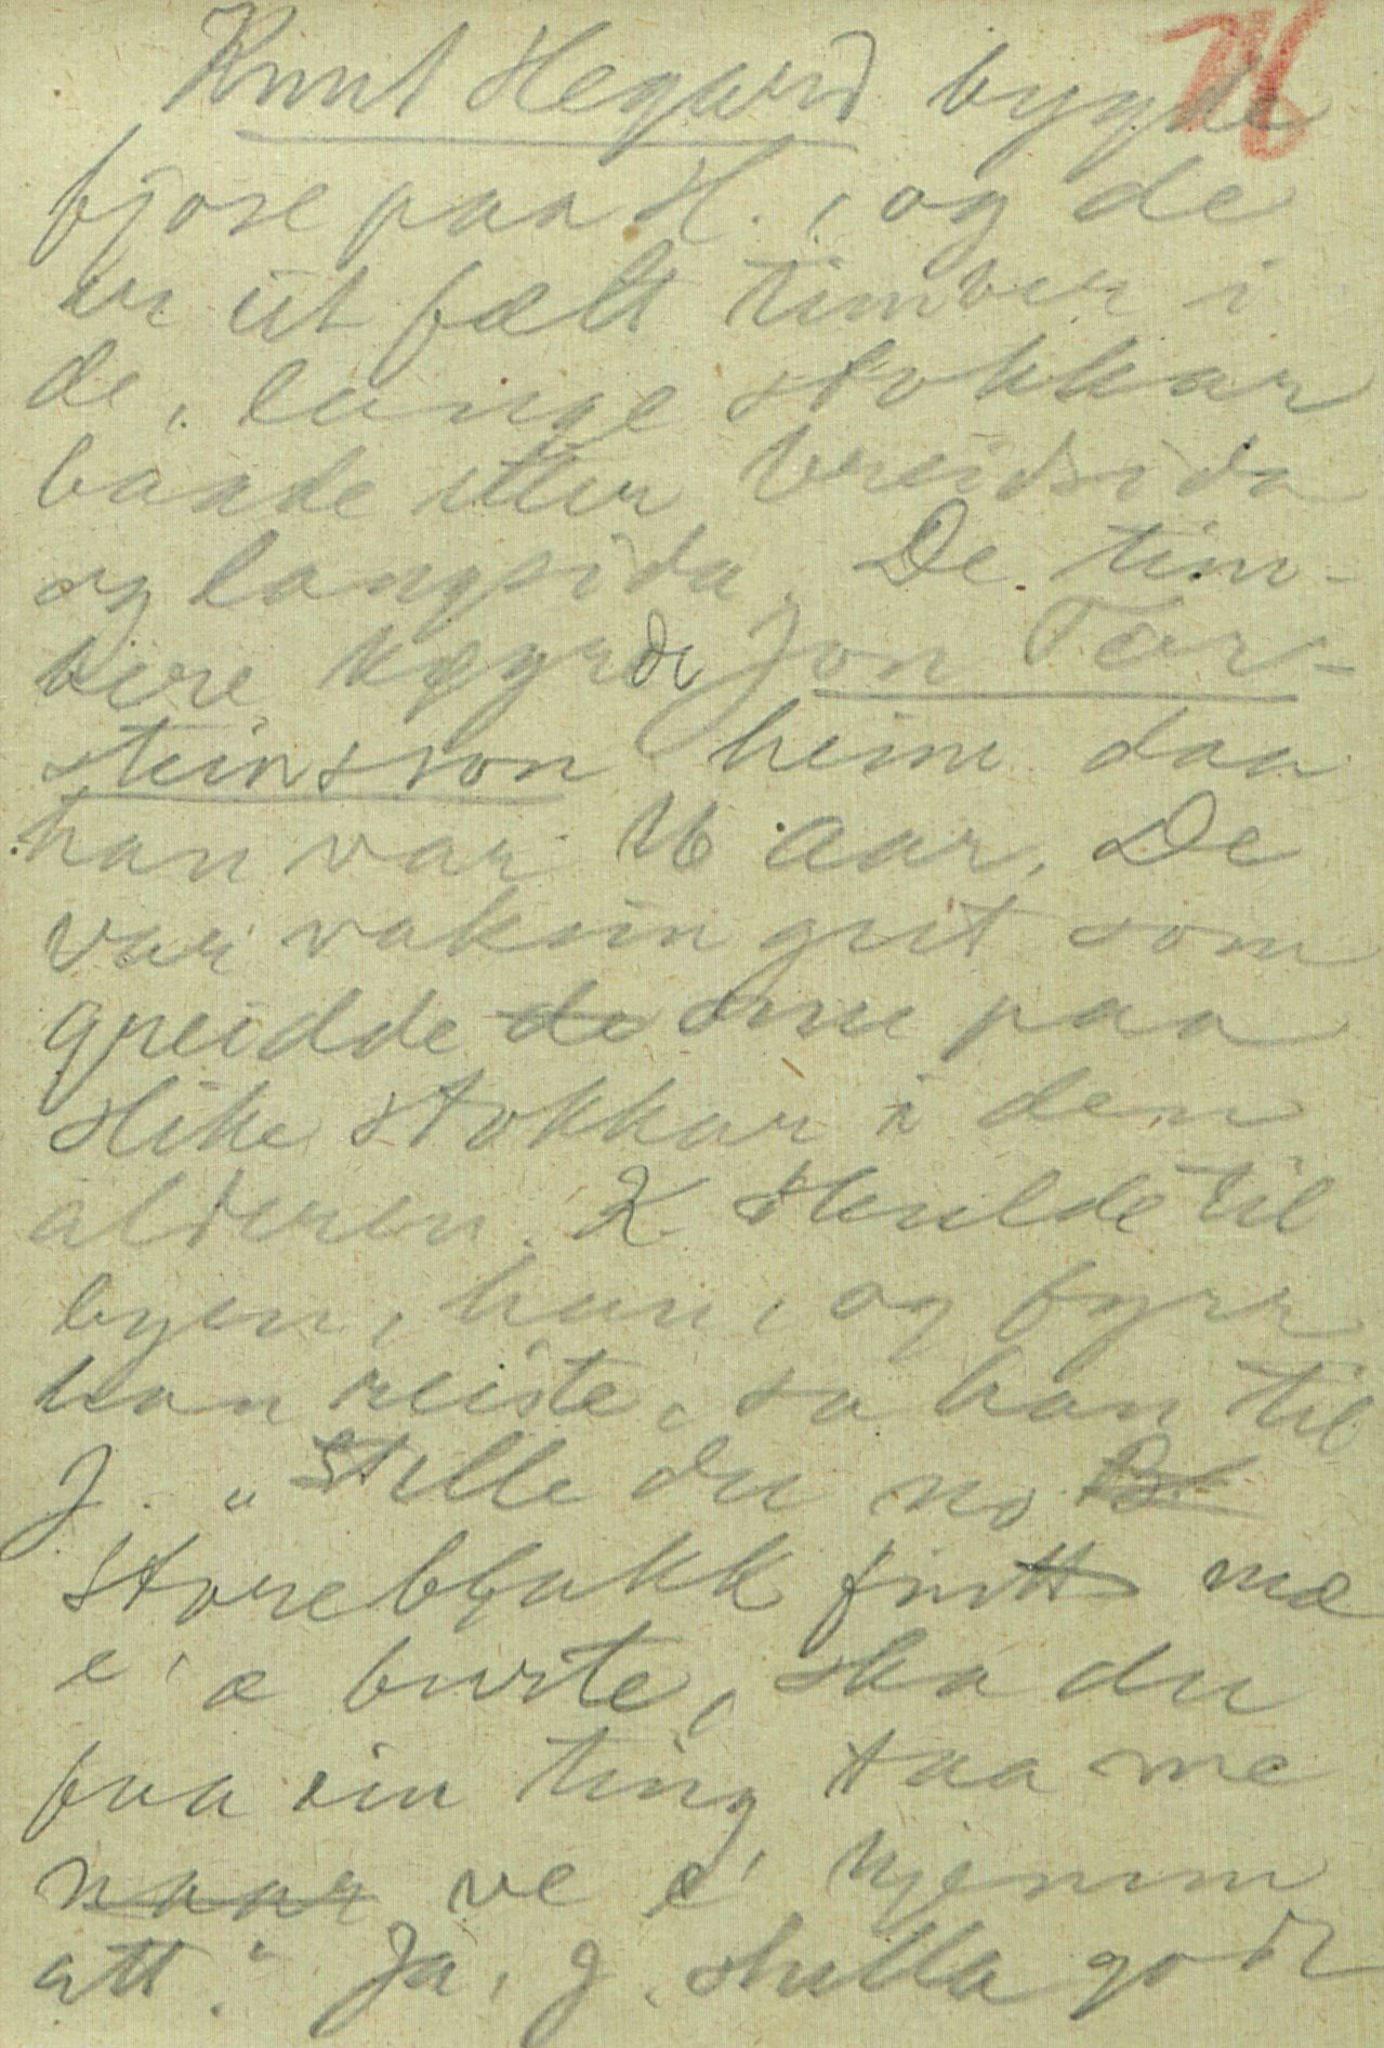 76
Knut Hegard bygde
fjøse paa H., og de
er ut fælt timber i
de, lange stokkar
baade etter breidsida
og langsida. De tim-
bere kjøyrde Jon Tor-
steinsson heim daa
han var 16 aar. De
var vaksin gut som
greidde de snu paa
slike stokkar i den
alderen. K skulde til
byen, han, og fyrr
han reiste, sa han til
J. "Stelle du no
Storeblakk mæ
e' æ burte, ska du
faa ein ting taa me
naar ve e' kjemm
att." Ja, J. stella godt